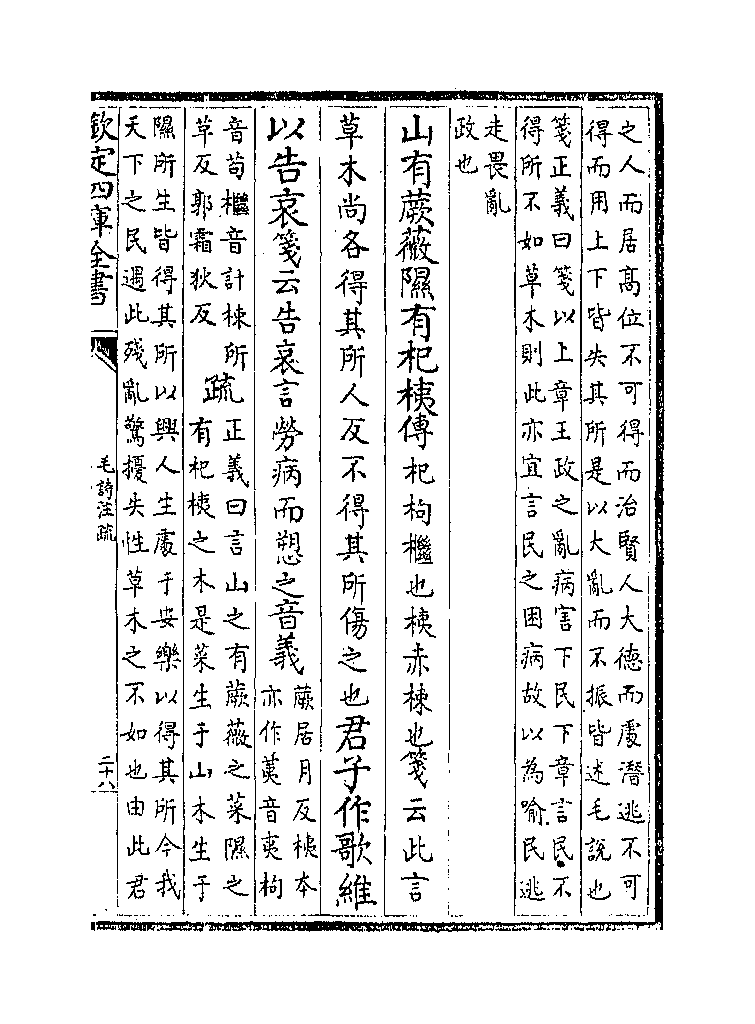 之人而居高位不可得而治賢人大德而處潛逃不可
得而用上下皆失其所是以大亂而不振皆述毛說也
箋正義曰箋以上章王政之亂病害下民下章言民不
得所不如草木則此亦宜言民之困病故以為喻民逃
走畏亂
政也
山有蕨薇隰有杞桋傳杞枸檵也桋赤楝也箋云此言
草木尚各得其所人反不得其所傷之也君子作歌維
以告哀箋云告哀言勞病而愬之音義
蕨居月反桋本
亦作荑音夷枸
音苟檵音計楝所
草反郭霜狄反
疏
正義曰言山之有蕨薇之菜隰之
有杞桋之木是菜生于山木生于
隰所生皆得其所以興人生處于安樂以得其所今我
天下之民遇此殘亂驚擾失性草木之不如也由此君
欽定四庫全書
毛詩注疏
二十八